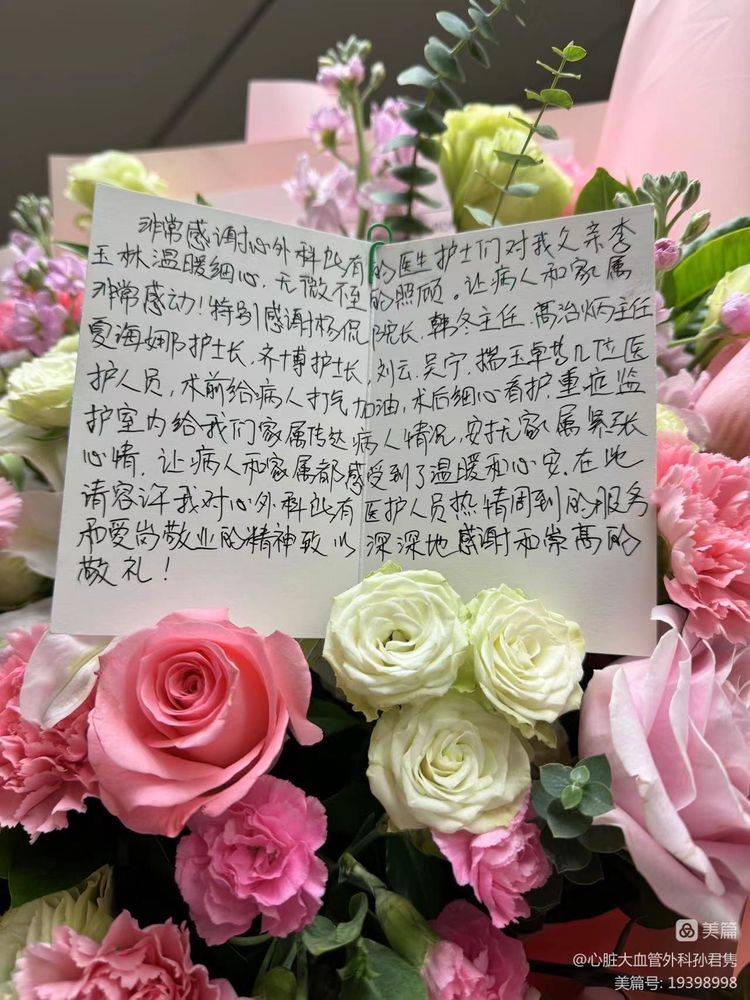 非常感谢心外科所有的医生护士们对我父亲李
玉林温暖细心,无微不至的照顾。让病人和家属
非常感动!特别感谢杨侃院长、韩冬主任、高治炳主任
夏海娜护士长、齐博护士长、刘云、吴宁、揣玉卓等几位医
护人员,术前给病人打气加油,术后细心看护,重症监
护室内给我们家属传达病人情况,安抚家属紧张
心情,让病人和家属都感受到了温暖和心安,在此
请容许我对心外科所有医护人员热情周到的服务
和爱岗敬业的精神致以深深地感谢和崇高的
敬礼!
美篇
@心脏大血管外科孙君隽
美篇号: 19398998